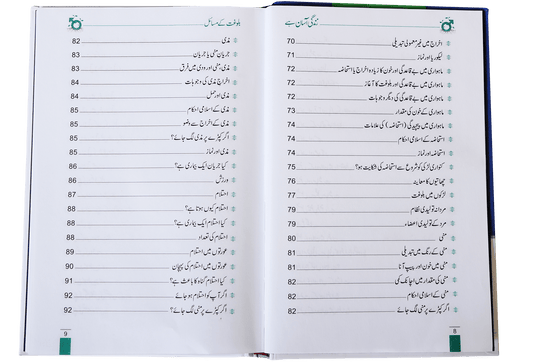 زندگی آسان ہے
اخراج میں غیر معمولی تبدیلی 70
لیکوریا اور نماز 71
ماہواری میں بے قاعدگی اور خون کا زیادہ اخراج یا استحاضہ 72
ماہواری میں بے قاعدگی اور بلوغت کا آغاز 72
ماہواری میں بے قاعدگی کی دیگر وجوہات 72
ماہواری کے خون کی مقدار 73
ماہواری میں پیچیدگی (استحاضہ) کی علامات 74
استحاضہ کے اسلامی احکام 74
استحاضہ اور نماز 74
کنواری لڑکی کو شروع سے استحاضہ کی شکایت ہو؟ 75
چھاتیوں کا معاینہ 76
لڑکوں میں بلوغت 77
مردانہ تولیدی نظام 79
مرد کے تولیدی اعضاء 79
منی 80
منی کے رنگ میں تبدیلی 81
منی میں خون اور پیپ آنا 81
منی کی مقدار میں اچانک کمی 82
منی کے اسلامی احکام 82
اگر کپڑے پر منی لگ جائے؟ 82
8
بلوغت کے مسائل
مذی 82
جریان منی یا جریان 83
مذی، منی اور ودی میں فرق 83
اخراج مذی کی وجوہات 84
مذی اور حمل 84
مذی کے اسلامی احکام 85
مذی کے اخراج سے وضو 85
اگر کپڑے پر مذی لگ جائے؟ 85
مذی اور نماز 85
کیا جریان ایک بیماری ہے؟ 86
ورزش 86
احتلام 87
احتلام کیوں ہوتا ہے؟ 88
کیا احتلام ایک بیماری ہے؟ 88
احتلام کی تعداد 88
عورتوں میں احتلام 89
عورتوں میں احتلام کی پہچان 90
کیا احتلام گناہ کا باعث ہے؟ 91
اگر آپ کو احتلام ہو جائے 92
اگر کپڑے پر منی لگ جائے؟ 92
9